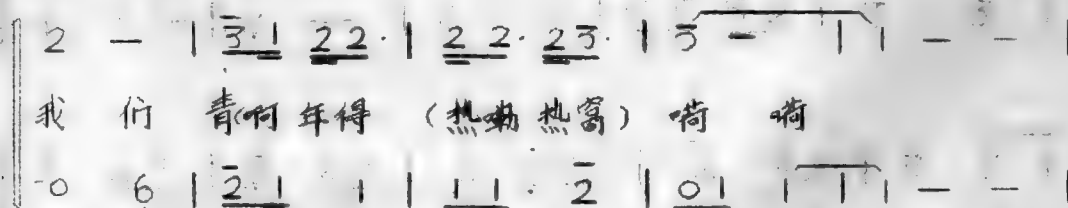 2 — | 3·1 22· | 22·23· | 3 — 1 | 1 — —
我们青(啊年得(热嘞热窝)嗬嗬
0 6 | 2·1 1 | 11·2 | 01 1 1 | 1 — —